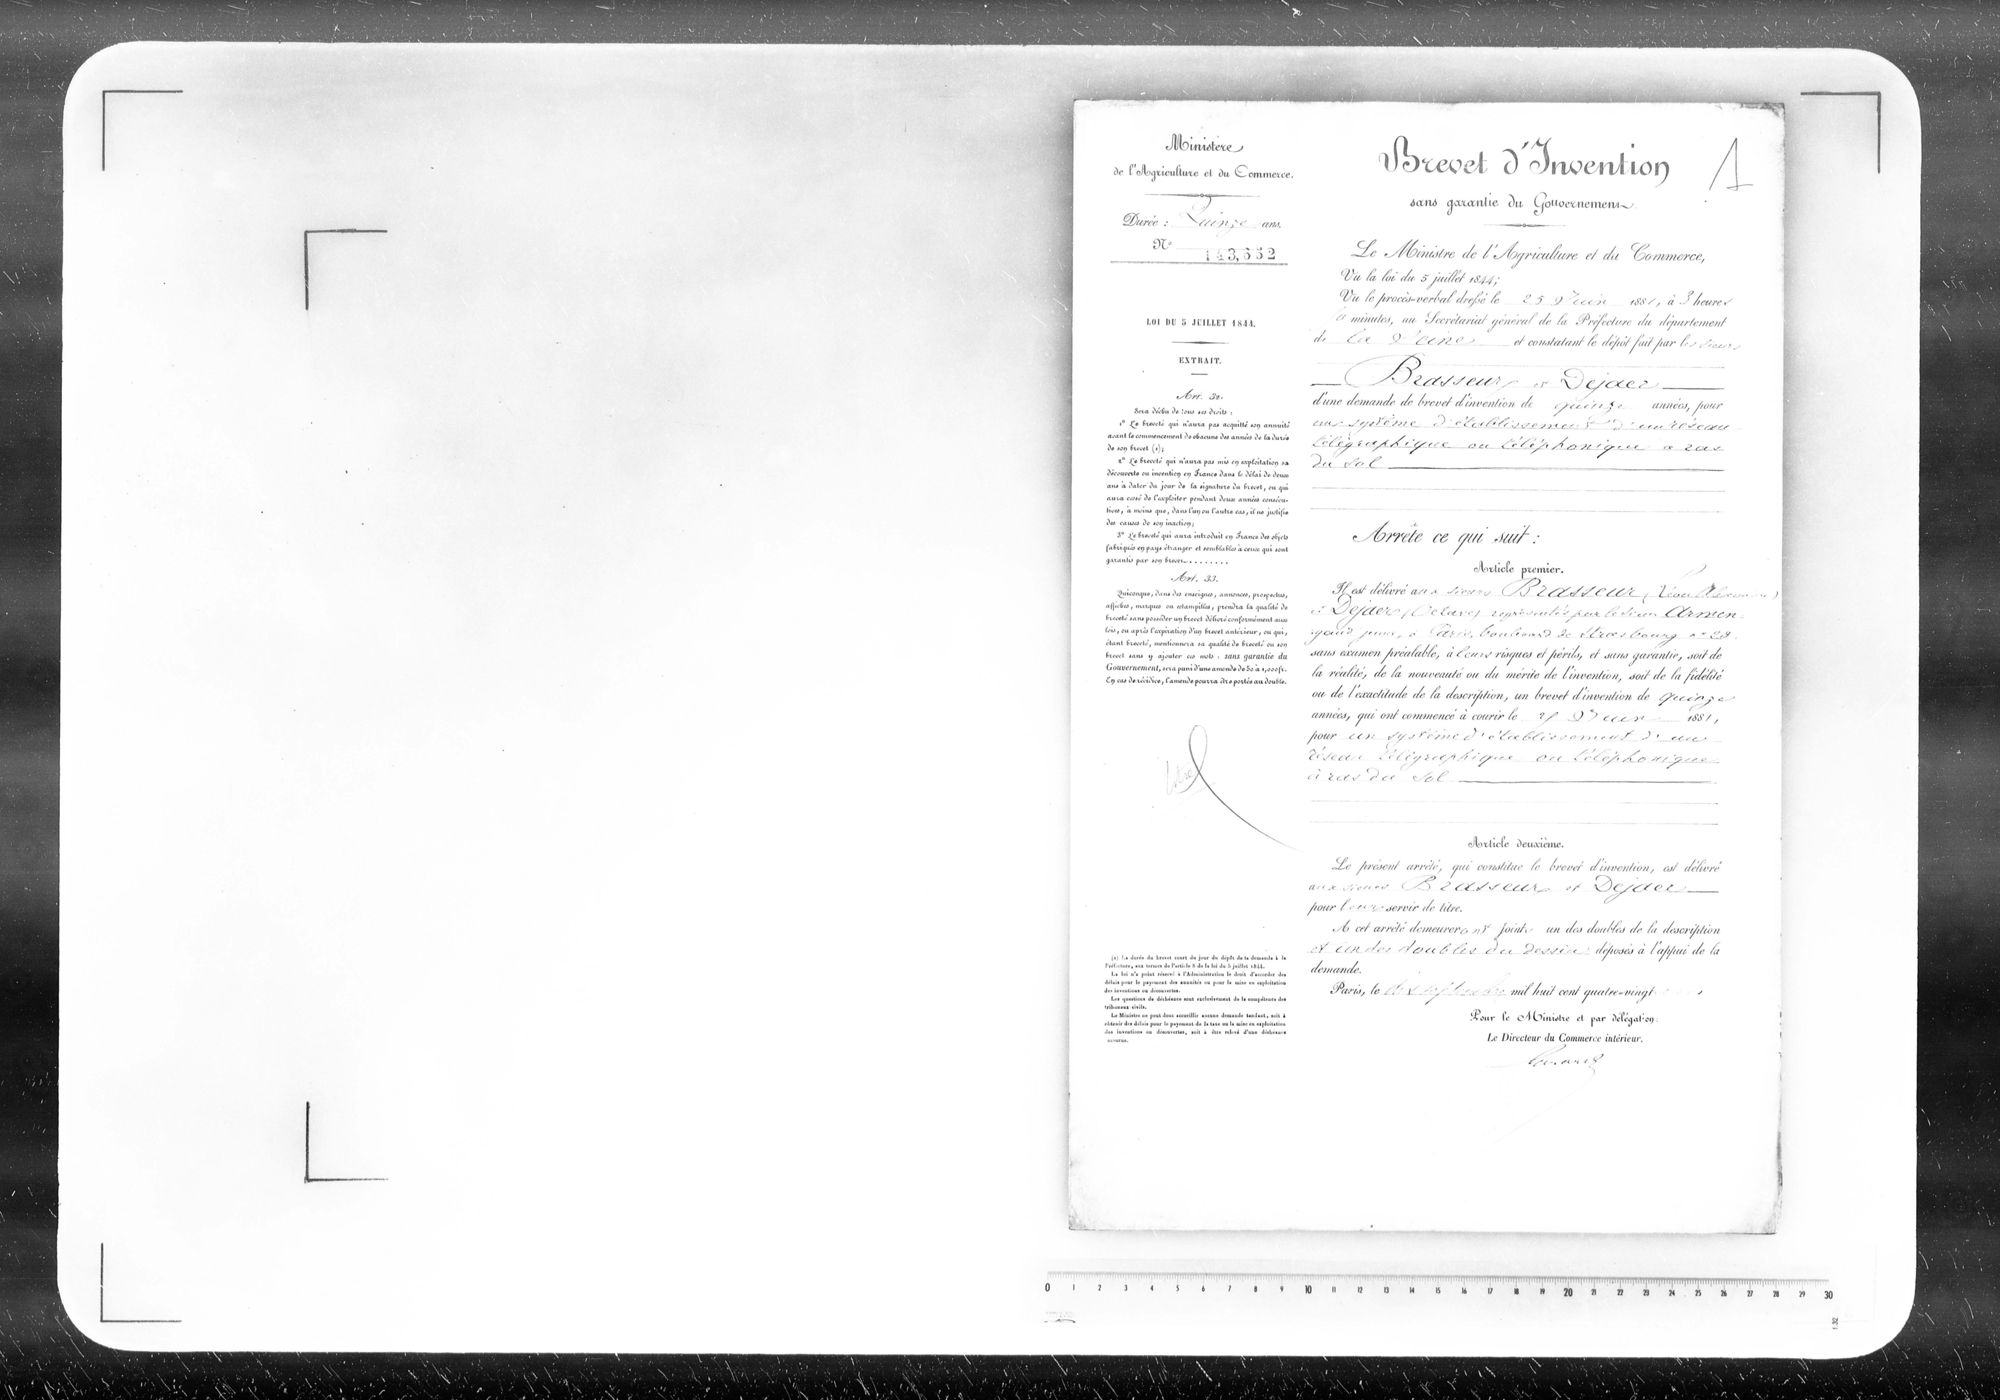 Ministère
de l'Agriculture et du Commerce.
Durée : Quinze ans.
N° 143,652
LOI DU 5 JUILLET 1844.
EXTRAIT.
Art. 32.
Sera déchu de tous ses droits :
1° Le breveté qui n'aura pas acquitté son annuité
avant le commencement de chacune des années de la durée
de son brevet (1);
2° Le breveté qui n'aura pas mis en exploitation sa
découverte ou invention en France dans le délai de deux
ans à dater du jour de la signature du brevet, ou qui
aura cessé de l'exploiter pendant deux années consécu-
tives, à moins que, dans l'un ou l'autre cas, il ne justifie
des causes de son inaction;
3° Le breveté qui aura introduit en France des objets
fabriqués en pays étranger et semblables à ceux qui sont
garantis par son brevet........
Art. 33.
Quiconque, dans des enseignes, annonces, prospectus,
affiches, marques ou estampilles, prendra la qualité de
breveté sans posséder un brevet délivré conformément aux
lois, ou après l'expiration d'un brevet antérieur, ou qui,
étant breveté, mentionnera sa qualité de breveté ou son
brevet sans y ajouter ces mots : sans garantie du
Gouvernement, sera puni d'une amende de 50 à 1,000 fr.
En cas de récidive, l'amende pourra être portée au double.
(1) La durée du brevet court du jour du dépôt de la demande à la
Préfecture, aux termes de l'article 8 de la loi du 5 juillet 1844.
La loi n'a point réservé à l'Administration le droit d'accorder des
délais pour le payement des annuités ou pour la mise en exploitation
des inventions ou découvertes.
Les questions de déchéance sont exclusivement de la compétence des
tribunaux civils.
Le Ministre ne peut donc accueillir aucune demande tendant, soit à
obtenir des délais pour le payement de la taxe ou la mise en exploitation
des inventions ou découvertes, soit à être relevé d'une déchéance
encourue.
Brevet d'Invention
1
sans garantie du Gouvernement.
Le Ministre de l'Agriculture et du Commerce,
Vu la loi du 5 juillet 1844;
Vu le procès-verbal dressé le 25 Juin 1881, à 3 heures
minutes, au Secrétariat général de la Préfecture du département
de la Seine et constatant le dépôt fait par les sieurs
Brasseur et Dejaer
d'une demande de brevet d'invention de quinze années, pour
un système d'établissement d'un réseau
télégraphique ou téléphonique à ras
du sol
Arrête ce qui suit :
Article premier.
Il est délivré aux sieurs Brasseur (Léon
et Dejaer (Octave) représentés par le sieur Armen-
gaud jeune, à Paris, boulevard de Strasbourg n° 23.
sans examen préalable, à leurs risques et périls, et sans garantie, soit de
la réalité, de la nouveauté ou du mérite de l'invention, soit de la fidélité
ou de l'exactitude de la description, un brevet d'invention de quinze
années, qui ont commencé à courir le 25 Juin 1881,
pour un système d'établissement d'un
réseau télégraphique ou téléphonique
à ras du sol
Article deuxième.
Le présent arrêté, qui constitue le brevet d'invention, est délivré
aux sieurs Brasseur et Dejaer
pour leur servir de titre.
A cet arrêté demeureront joints un des doubles de la description
et un des doubles du dessin déposés à l'appui de la
demande.
Paris, le septembre mil huit cent quatre-vingt
Pour le Ministre et par délégation:
Le Directeur du Commerce intérieur.
0 1 2 3 4 5 6 7 8 9 10 11 12 13 14 15 16 17 18 19 20 21 22 23 24 25 26 27 28 29 30